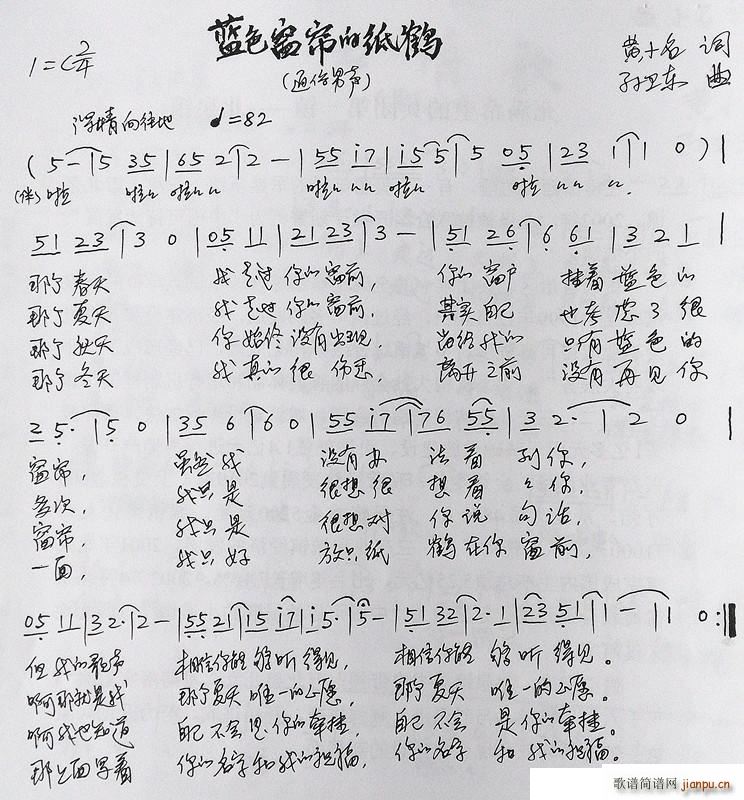 蓝色窗帘的纸鹤
(通俗男声)
1=C 2/4
黄小名 词
孙卫东 曲
深情向往地 ♩=82
( 5 - | 5 35 | 65 2 | 2 - | 55 i7 | i5 5 | 5 05 | 23 1 | 1 0 ) |
(伴) 啦 啦
51 23 | 3 0 | 05 11 | 21 23 | 3 - | 51 26 | 6 61 | 3 21 |
那个春天 我走过 你的窗前, 你的窗户 挂着蓝色的
那个夏天 我走过 你的窗前, 其实自己 也考虑了很
那个秋天 你始终 没有出现, 留给我的 只有蓝色的
那个冬天 我真的 很伤悲 离开之前 没有再见你
2 5· | 5 0 | 35 6 | 6 0 | 55 i7 | 76 55 | 3 2· | 2 0 |
窗帘, 虽然我 没有办 法看 到你,
多次, 我只是 很想很 想看 看你,
窗帘 我只是 很想对 你说 句话,
一面, 我只好 放只纸 鹤在你 窗前,
05 11 | 32· | 2 - | 55 21 | 15 i7 | i5· | 5 - | 51 32 | 2·1 | 23 51 | 1 - | 1 0 :‖
但我的歌声 相信你能 够听得见, 相信你能 够听得见。
啊那就是我 那个夏天 唯一的心愿, 那个夏天 唯一的心愿。
啊我也知道 自己不会 是你的牵挂, 自己不会 是你的牵挂。
那上面写着 你的名字和我的祝福, 你的名字 和我的祝福。
歌谱简谱网
jianpu.cn